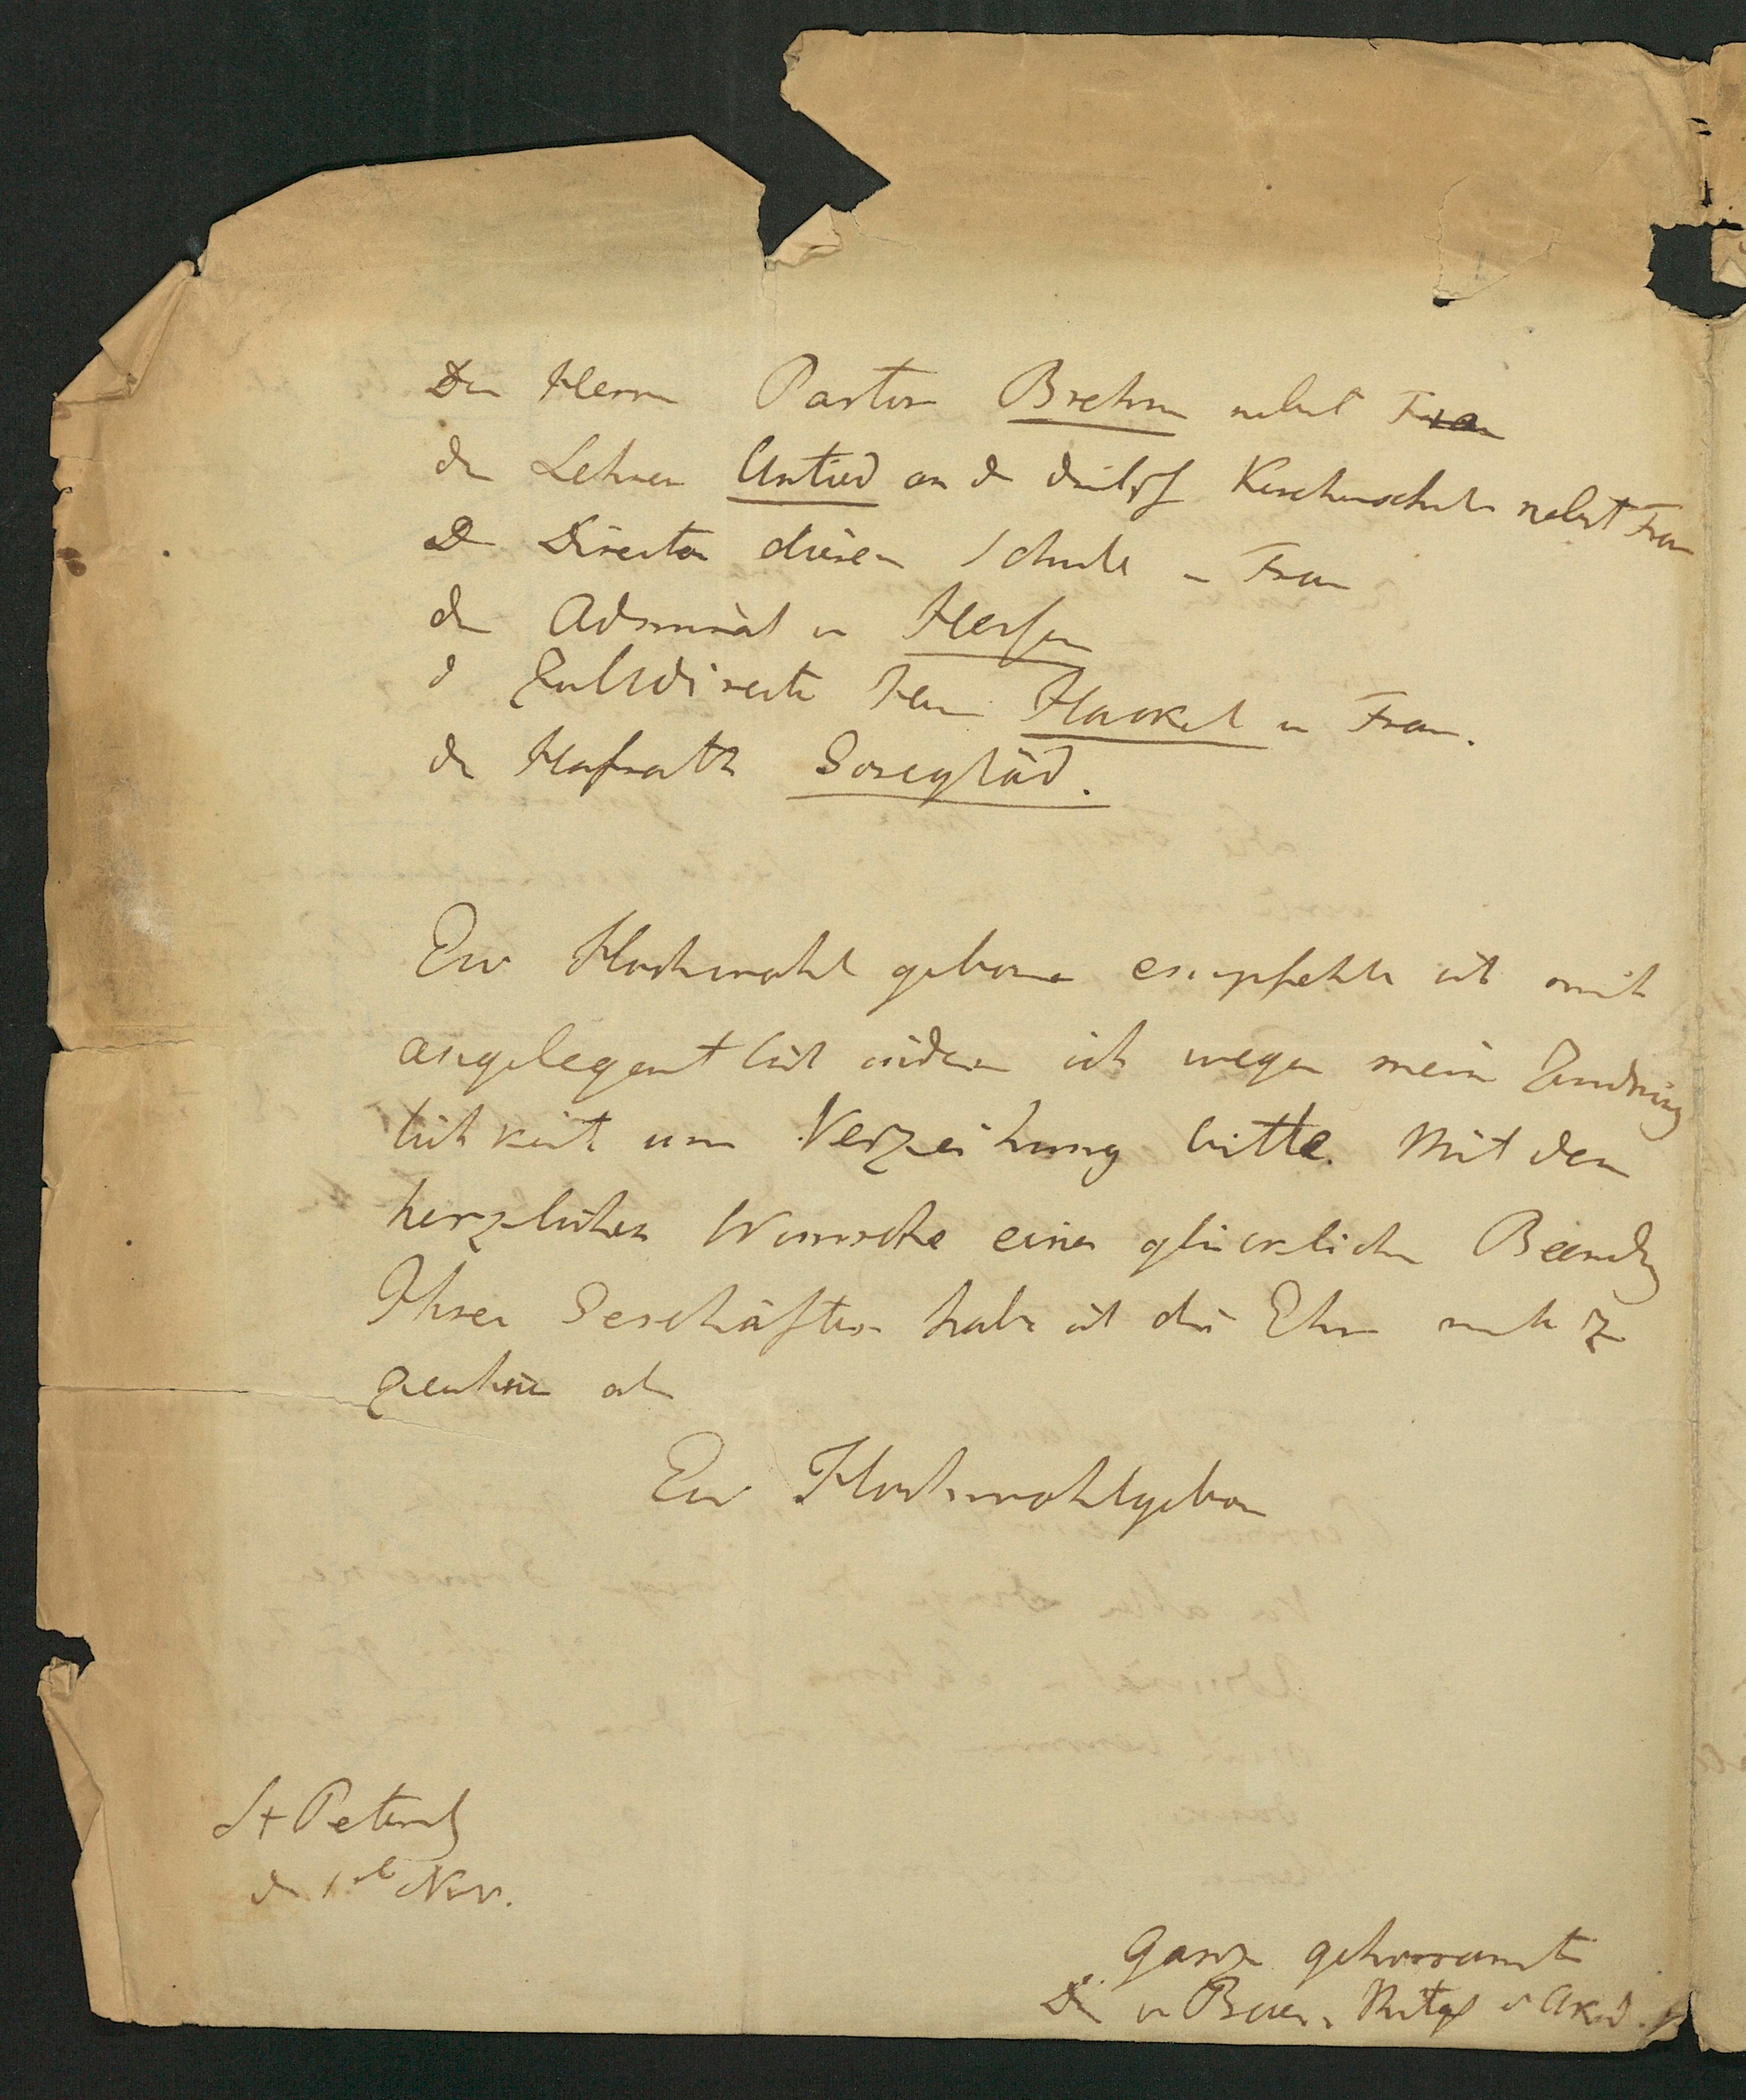 Den Herrn Pastor Brehm nebst Frau
den Lehrer Untied an d deutsch Kirchenschule nebst Frau
D Director dieser Schule u Frau
den Admiral v
d Herrn Hackel u Frau.
den Hofrath
Ew Hochwohl geboren empfehle ich mich
angelegentlich indem ich wegen meiner Zudring
lichkeit um Verzeihung bitte. Mit dem
herzlichen Wunsche einer glücklichen Beendg
Ihrer Geschäfte habe ich die Ehre mich zu
zeichnen als
Ew Hochwohlgeboren
St Petersb
d 1 Nov.
ganz gehorsamster
Dr v Baer, Mitgl d Akad.